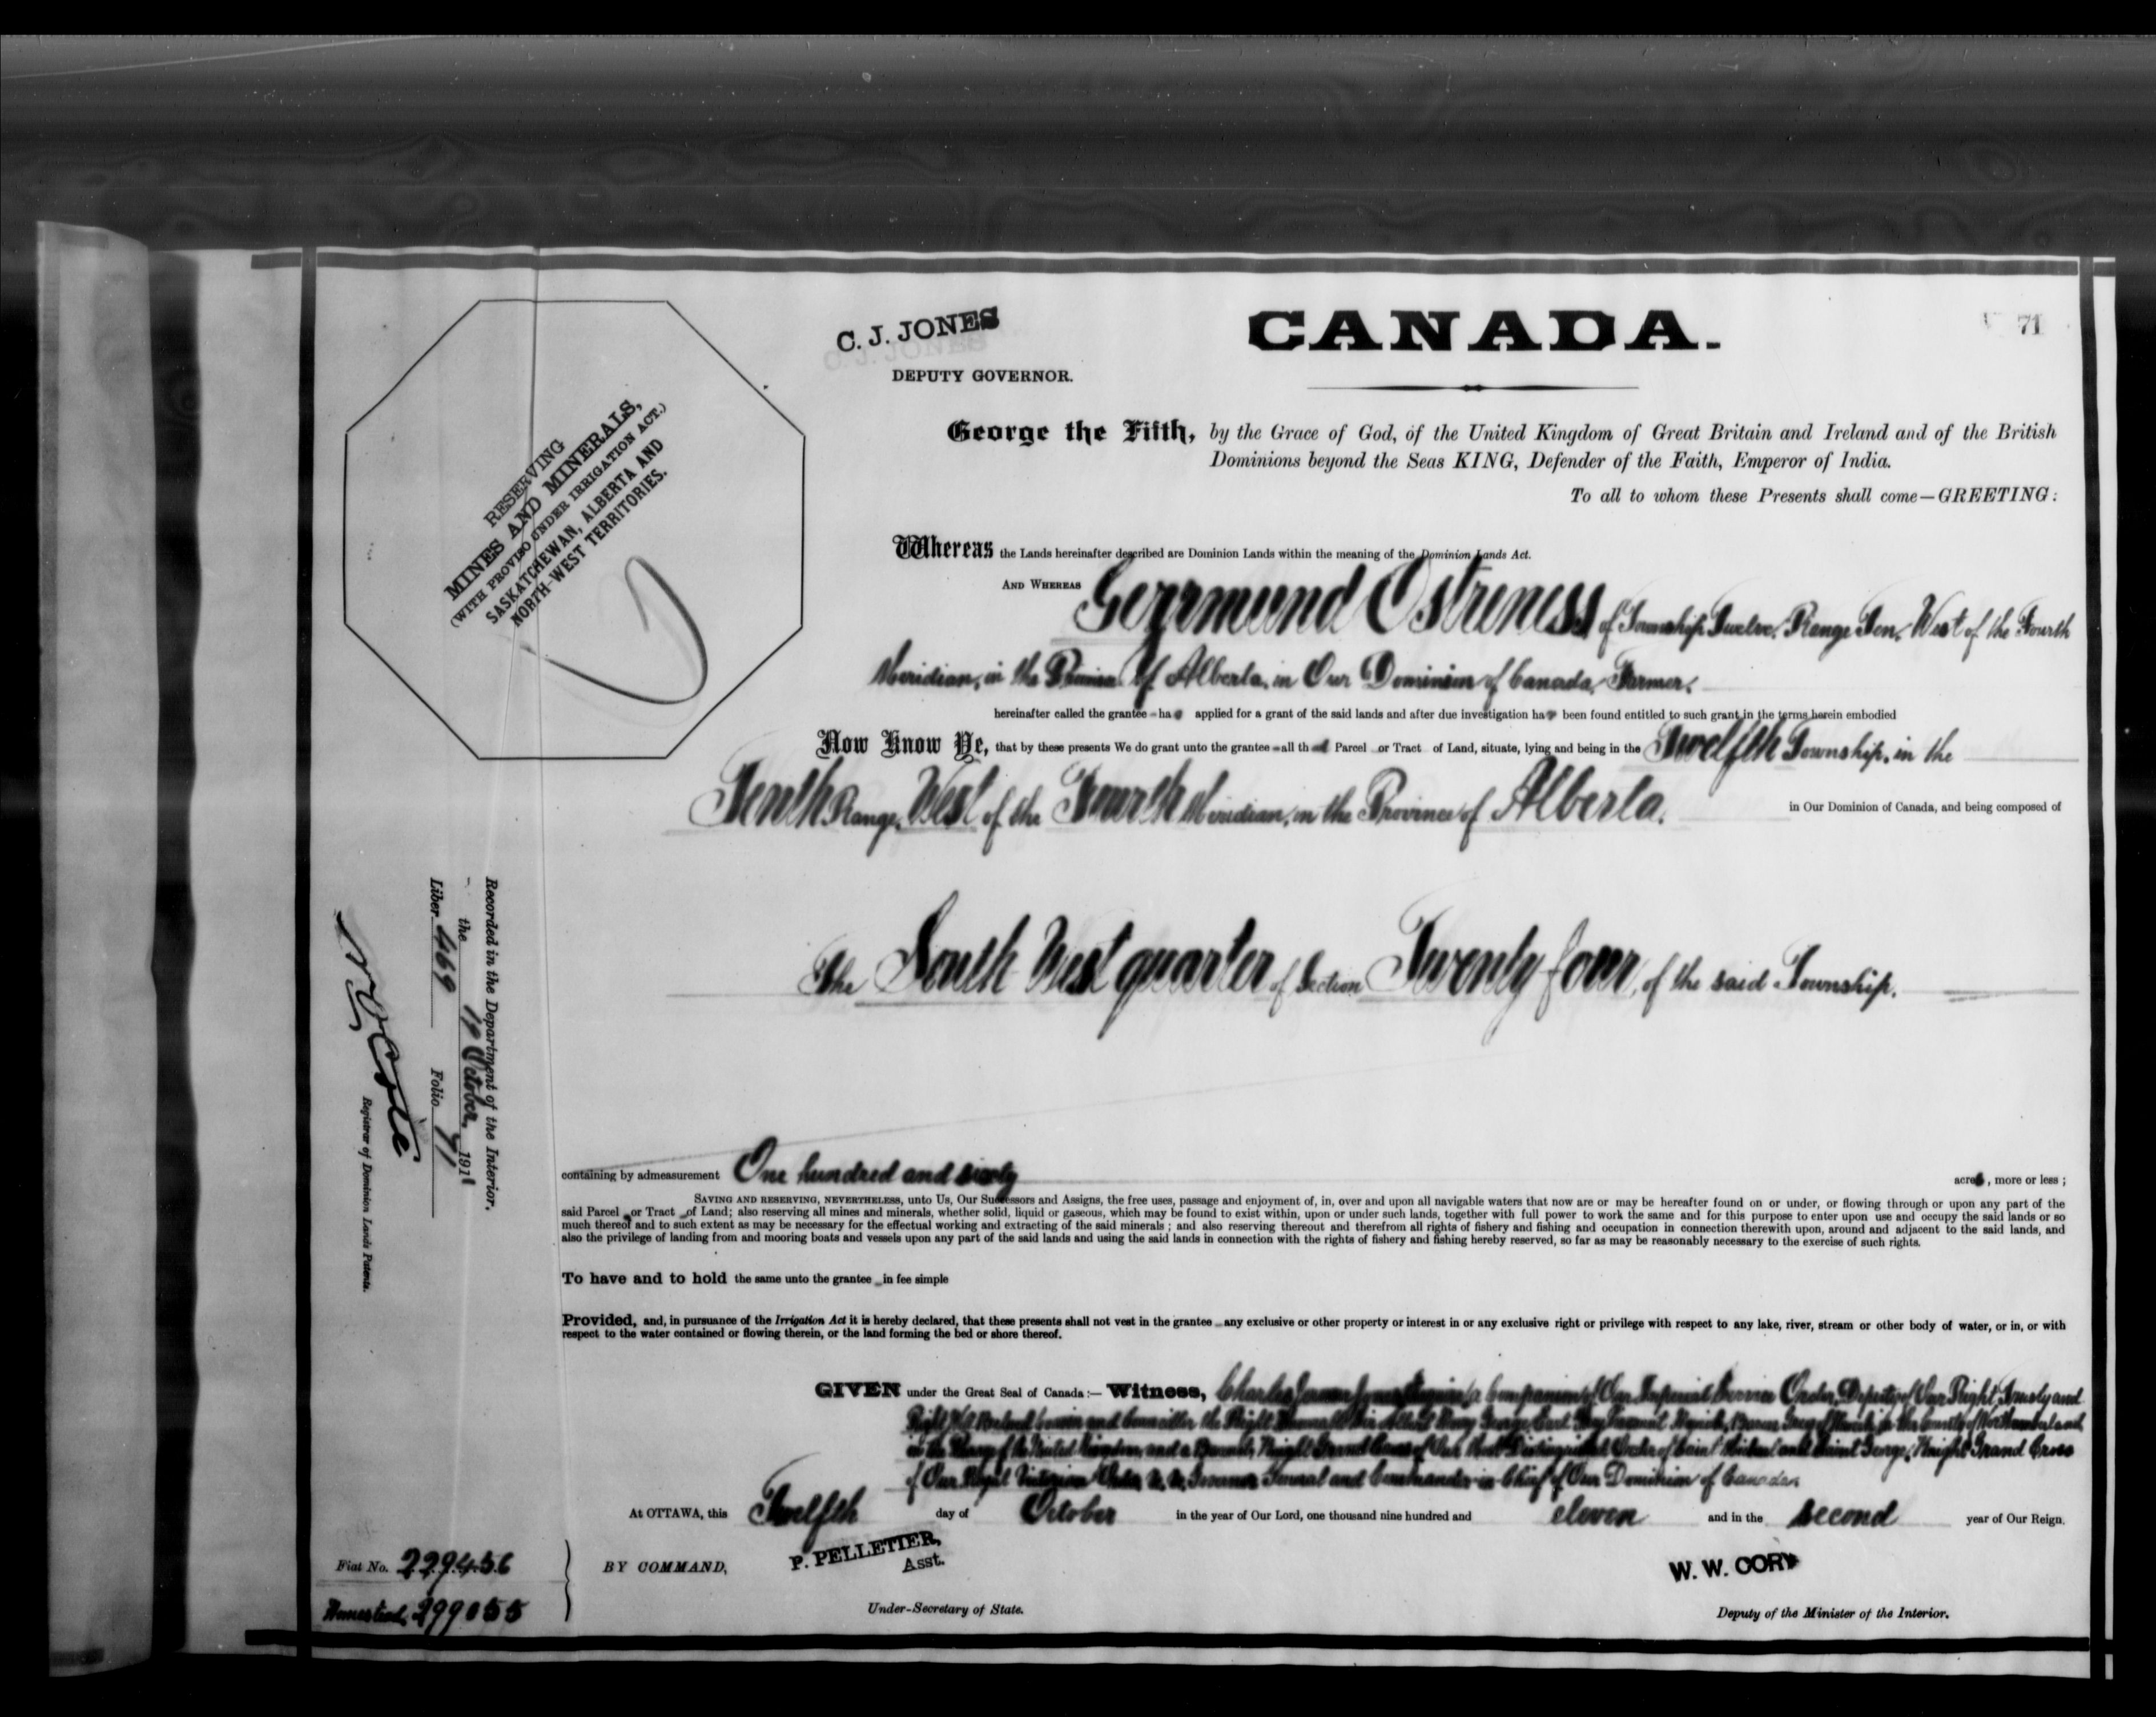 C. J. JONES
DEPUTY GOVERNOR.
CANADA.
71
RESERVING
MINES AND MINERALS,
(WITH PROVISO UNDER IRRIGATION ACT.)
SASKATCHEWAN, ALBERTA AND
NORTH-WEST TERRITORIES.
George the Fifth, by the Grace of God, of the United Kingdom of Great Britain and Ireland and of the British
Dominions beyond the Seas KING, Defender of the Faith, Emperor of India.
To all to whom these Presents shall come—GREETING:
Whereas the Lands hereinafter described are Dominion Lands within the meaning of the Dominion Lands Act.
AND WHEREAS Gerrmund Ostreness of Township Twelve, Range Ten, West of the Fourth
Meridian, in the Province of Alberta, in Our Dominion of Canada, Farmer,
hereinafter called the grantee - has applied for a grant of the said lands and after due investigation has been found entitled to such grant in the terms herein embodied
Now Know Ye, that by these presents We do grant unto the grantee - all that Parcel or Tract of Land, situate, lying and being in the Twelfth Township, in the
Tenth Range, West of the Fourth Meridian, in the Province of Alberta. in Our Dominion of Canada, and being composed of
The South West quarter of Section Twenty four, of the said Township.
containing by admeasurement One hundred and sixty acres, more or less;
SAVING AND RESERVING, NEVERTHELESS, unto Us, Our Successors and Assigns, the free uses, passage and enjoyment of, in, over and upon all navigable waters that now are or may be hereafter found on or under, or flowing through or upon any part of the
said Parcel or Tract of Land; also reserving all mines and minerals, whether solid, liquid or gaseous, which may be found to exist within, upon or under such lands, together with full power to work the same and for this purpose to enter upon use and occupy the said lands or so
much thereof and to such extent as may be necessary for the effectual working and extracting of the said minerals; and also reserving thereout and therefrom all rights of fishery and fishing and occupation in connection therewith upon, around and adjacent to the said lands, and
also the privilege of landing from and mooring boats and vessels upon any part of the said lands and using the said lands in connection with the rights of fishery and fishing hereby reserved, so far as may be reasonably necessary to the exercise of such rights.
To have and to hold the same unto the grantee in fee simple
Provided, and, in pursuance of the Irrigation Act it is hereby declared, that these presents shall not vest in the grantee any exclusive or other property or interest in or any exclusive right or privilege with respect to any lake, river, stream or other body of water, or in, or with
respect to the water contained or flowing therein, or the land forming the bed or shore thereof.
GIVEN under the Great Seal of Canada:— Witness, Charles James Jones, Esquire, a Companion of Our Imperial Service Order, Deputy of Our Right Trusty and
Right Well Beloved Cousin and Councillor, the Right Honourable Sir Albert Henry George, Earl Grey, Viscount Howick, Baron Grey of Howick in the County of Northumberland,
in the Peerage of the United Kingdom, and a Baronet, Knight Grand Cross of Our Most Distinguished Order of Saint Michael and Saint George, Knight Grand Cross
of Our Royal Victorian Order, &c. &c. Governor General and Commander-in-Chief of Our Dominion of Canada.
At OTTAWA, this Twelfth day of October in the year of Our Lord, one thousand nine hundred and eleven and in the second year of Our Reign.
BY COMMAND,
P. PELLETIER,
Asst.
Under-Secretary of State.
W. W. CORY
Deputy of the Minister of the Interior.
Recorded in the Department of the Interior.
the 19 October, 1911
Liber 469 Folio 71
Registrar of Dominion Lands Patents.
Fiat No. 229456
Homestead 299055